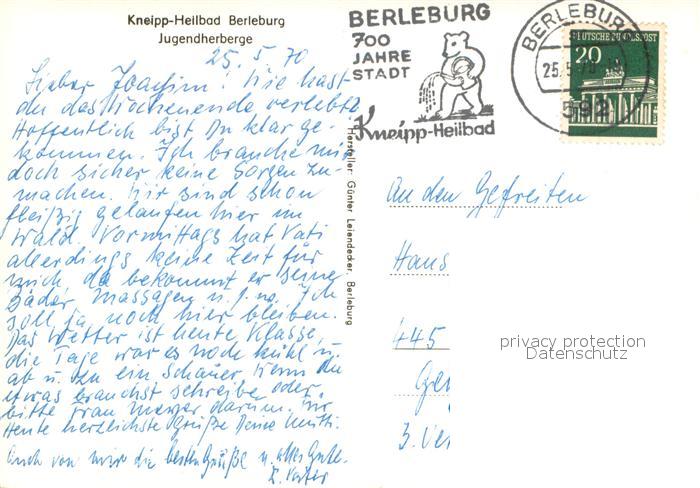 Kneipp-Heilbad Berleburg
Jugendherberge
25.5.70
Lieber Joachim! Wie hast
du das Wochenende verlebt?
Hoffentlich bist Du klar ge-
kommen. Ich brauche mir
doch sicher keine Sorgen zu
machen. Wir sind schon
fleißig gelaufen hier im
Wald. Vormittags hat Vati
allerdings keine Zeit für
mich, da bekommt er seine
Bäder Massagen u.s.w. Ich
soll ja noch hier bleiben.
Das Wetter ist heute Klasse,
die Tage war es noch kühl u.
ab u. zu ein Schauer. Wenn du
etwas brauchst schreibe oder
bitte Frau darum. Für
Heute herzlichste Grüße Deine Mutti.
Auch von mir die besten Grüße u. alles Gute.
Vater
Hersteller: Günter Leiendecker, Berleburg
BERLEBURG
700
JAHRE
STADT
Kneipp-Heilbad
BERLEBURG
25.5.70
592
DEUTSCHE BUNDESPOST
20
An den Gefreiten
Hans
445
3. Ver
privacy protection
Datenschutz